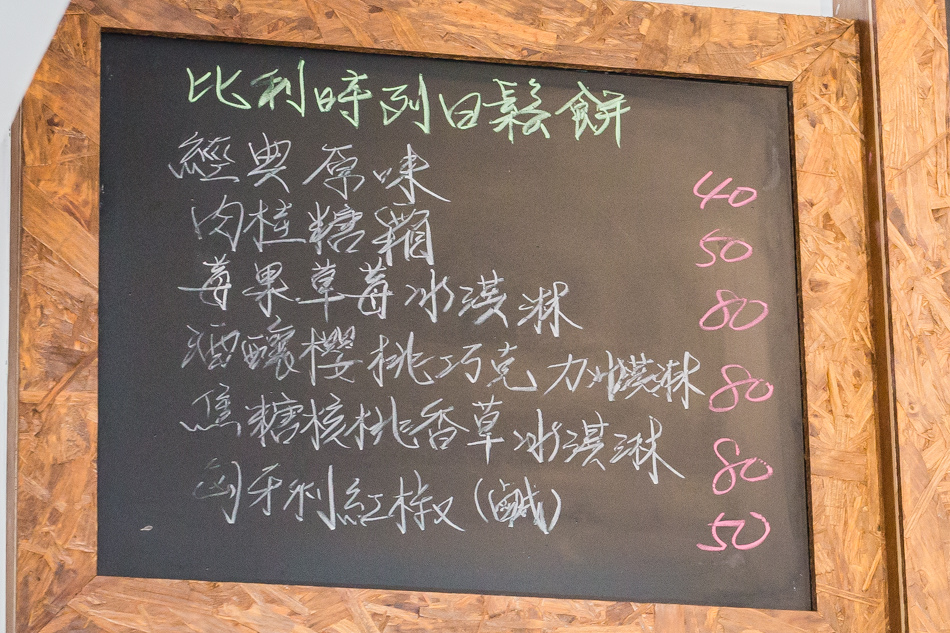 比利時列日鬆餅
經典原味 40
肉桂糖霜 50
莓果草莓冰淇淋 80
酒釀櫻桃巧克力冰淇淋 80
焦糖核桃香草冰淇淋 80
匈牙利紅椒(鹹) 50